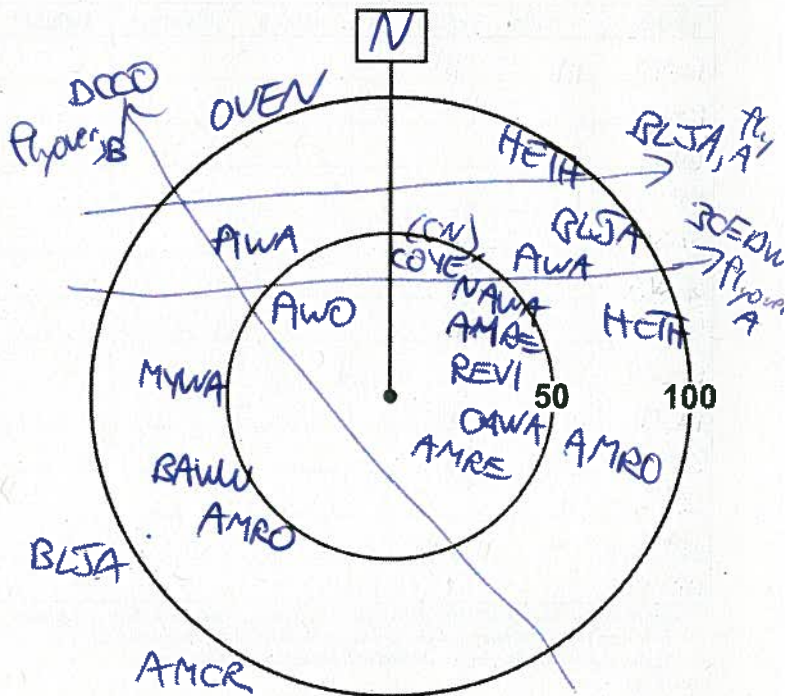 N
DCCO
Flyover, B
OVEN
HETH
BLJA, Fly
A
AWA
(CN)
COYE
AWA
BLJA
Flyover
A
AWO
NAWA
AMRE
HETH
MYWA
REVI
50
100
OAWA
AMRE
AMRO
BAWW
AMRO
BLJA
AMCR